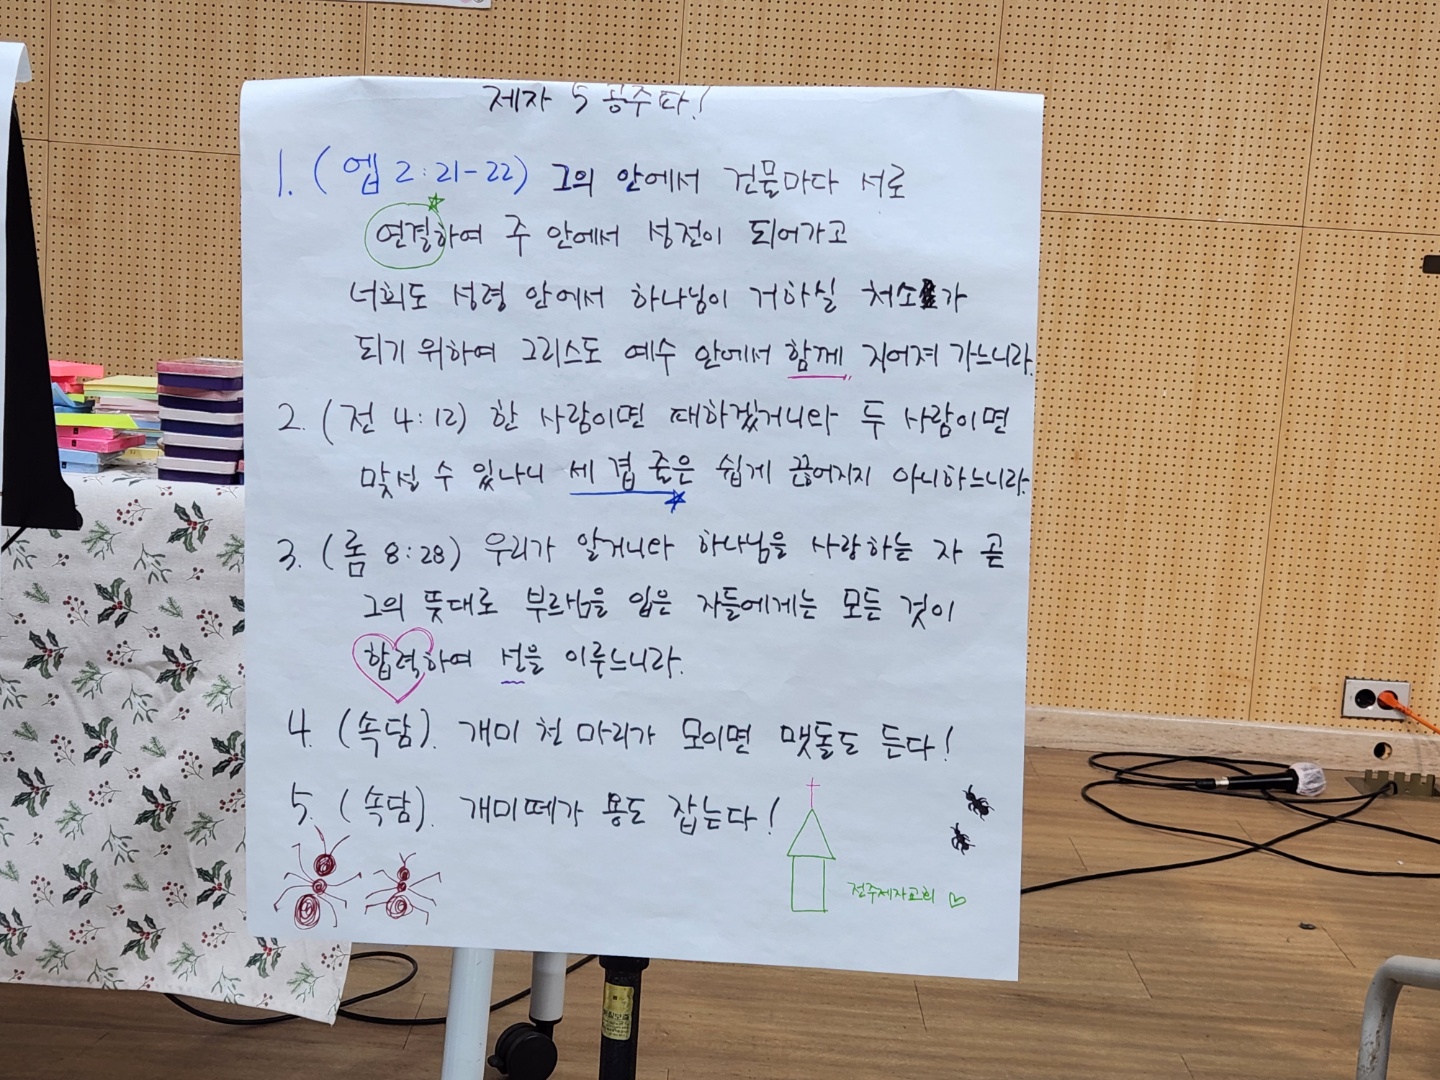 제자 5 공주다!
1. (엡 2:21-22) 그의 안에서 건물마다 서로
연결하여 주 안에서 성전이 되어가고
너희도 성령 안에서 하나님이 거하실 처소가
되기 위하여 그리스도 예수 안에서 함께 지어져 가느니라.
2. (전 4:12) 한 사람이면 패하겠거니와 두 사람이면
맞설 수 있나니 세 겹 줄은 쉽게 끊어지지 아니하느니라.
3. (롬 8:28) 우리가 알거니와 하나님을 사랑하는 자 곧
그의 뜻대로 부르심을 입은 자들에게는 모든 것이
합력하여 선을 이루느니라.
4. (속담). 개미 천 마리가 모이면 맷돌도 든다!
5. (속담). 개미떼가 용도 잡는다!
전주제자교회